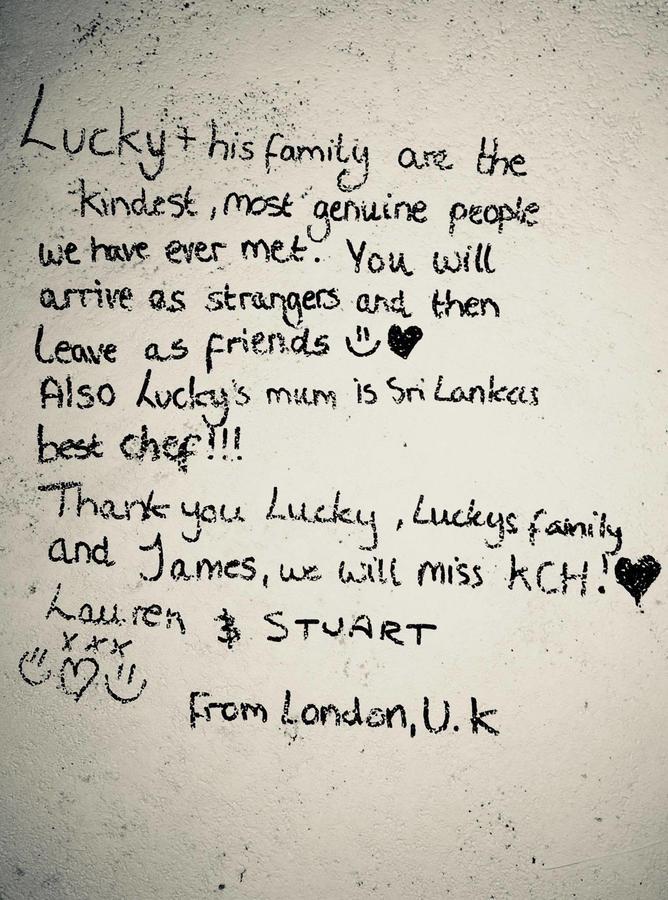 Lucky + his family are the
kindest, most genuine people
we have ever met. You will
arrive as strangers and then
leave as friends
Also Lucky's mum is Sri Lankas
best chef!!!
Thank you Lucky, Luckys family
and James, we will miss KCH!
Lauren & STUART
xxx
From London, U.K